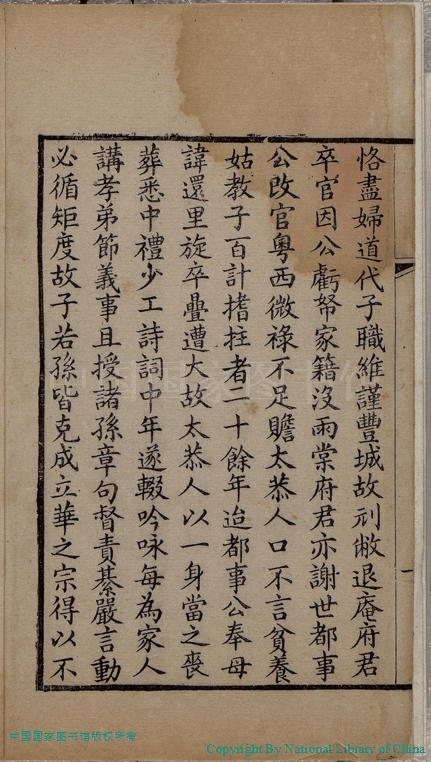 恪盡婦道代子職維謹豐城故刓敝退庵府君
卒官因公虧帑家籍沒雨棠府君亦謝世都事
公改官粵西微祿不足贍太恭人口不言貧養
姑教子百計搘拄者二十餘年迨都事公奉母
諱還里旋卒疊遭大故太恭人以一身當之喪
葬悉中禮少工詩詞中年遂輟吟咏每為家人
講孝弟節義事且授諸孫章句督責綦嚴言動
必循矩度故子若孫皆克成立華之宗得以不
一
中国国家图书馆版权所有
Copyright By National Library of China